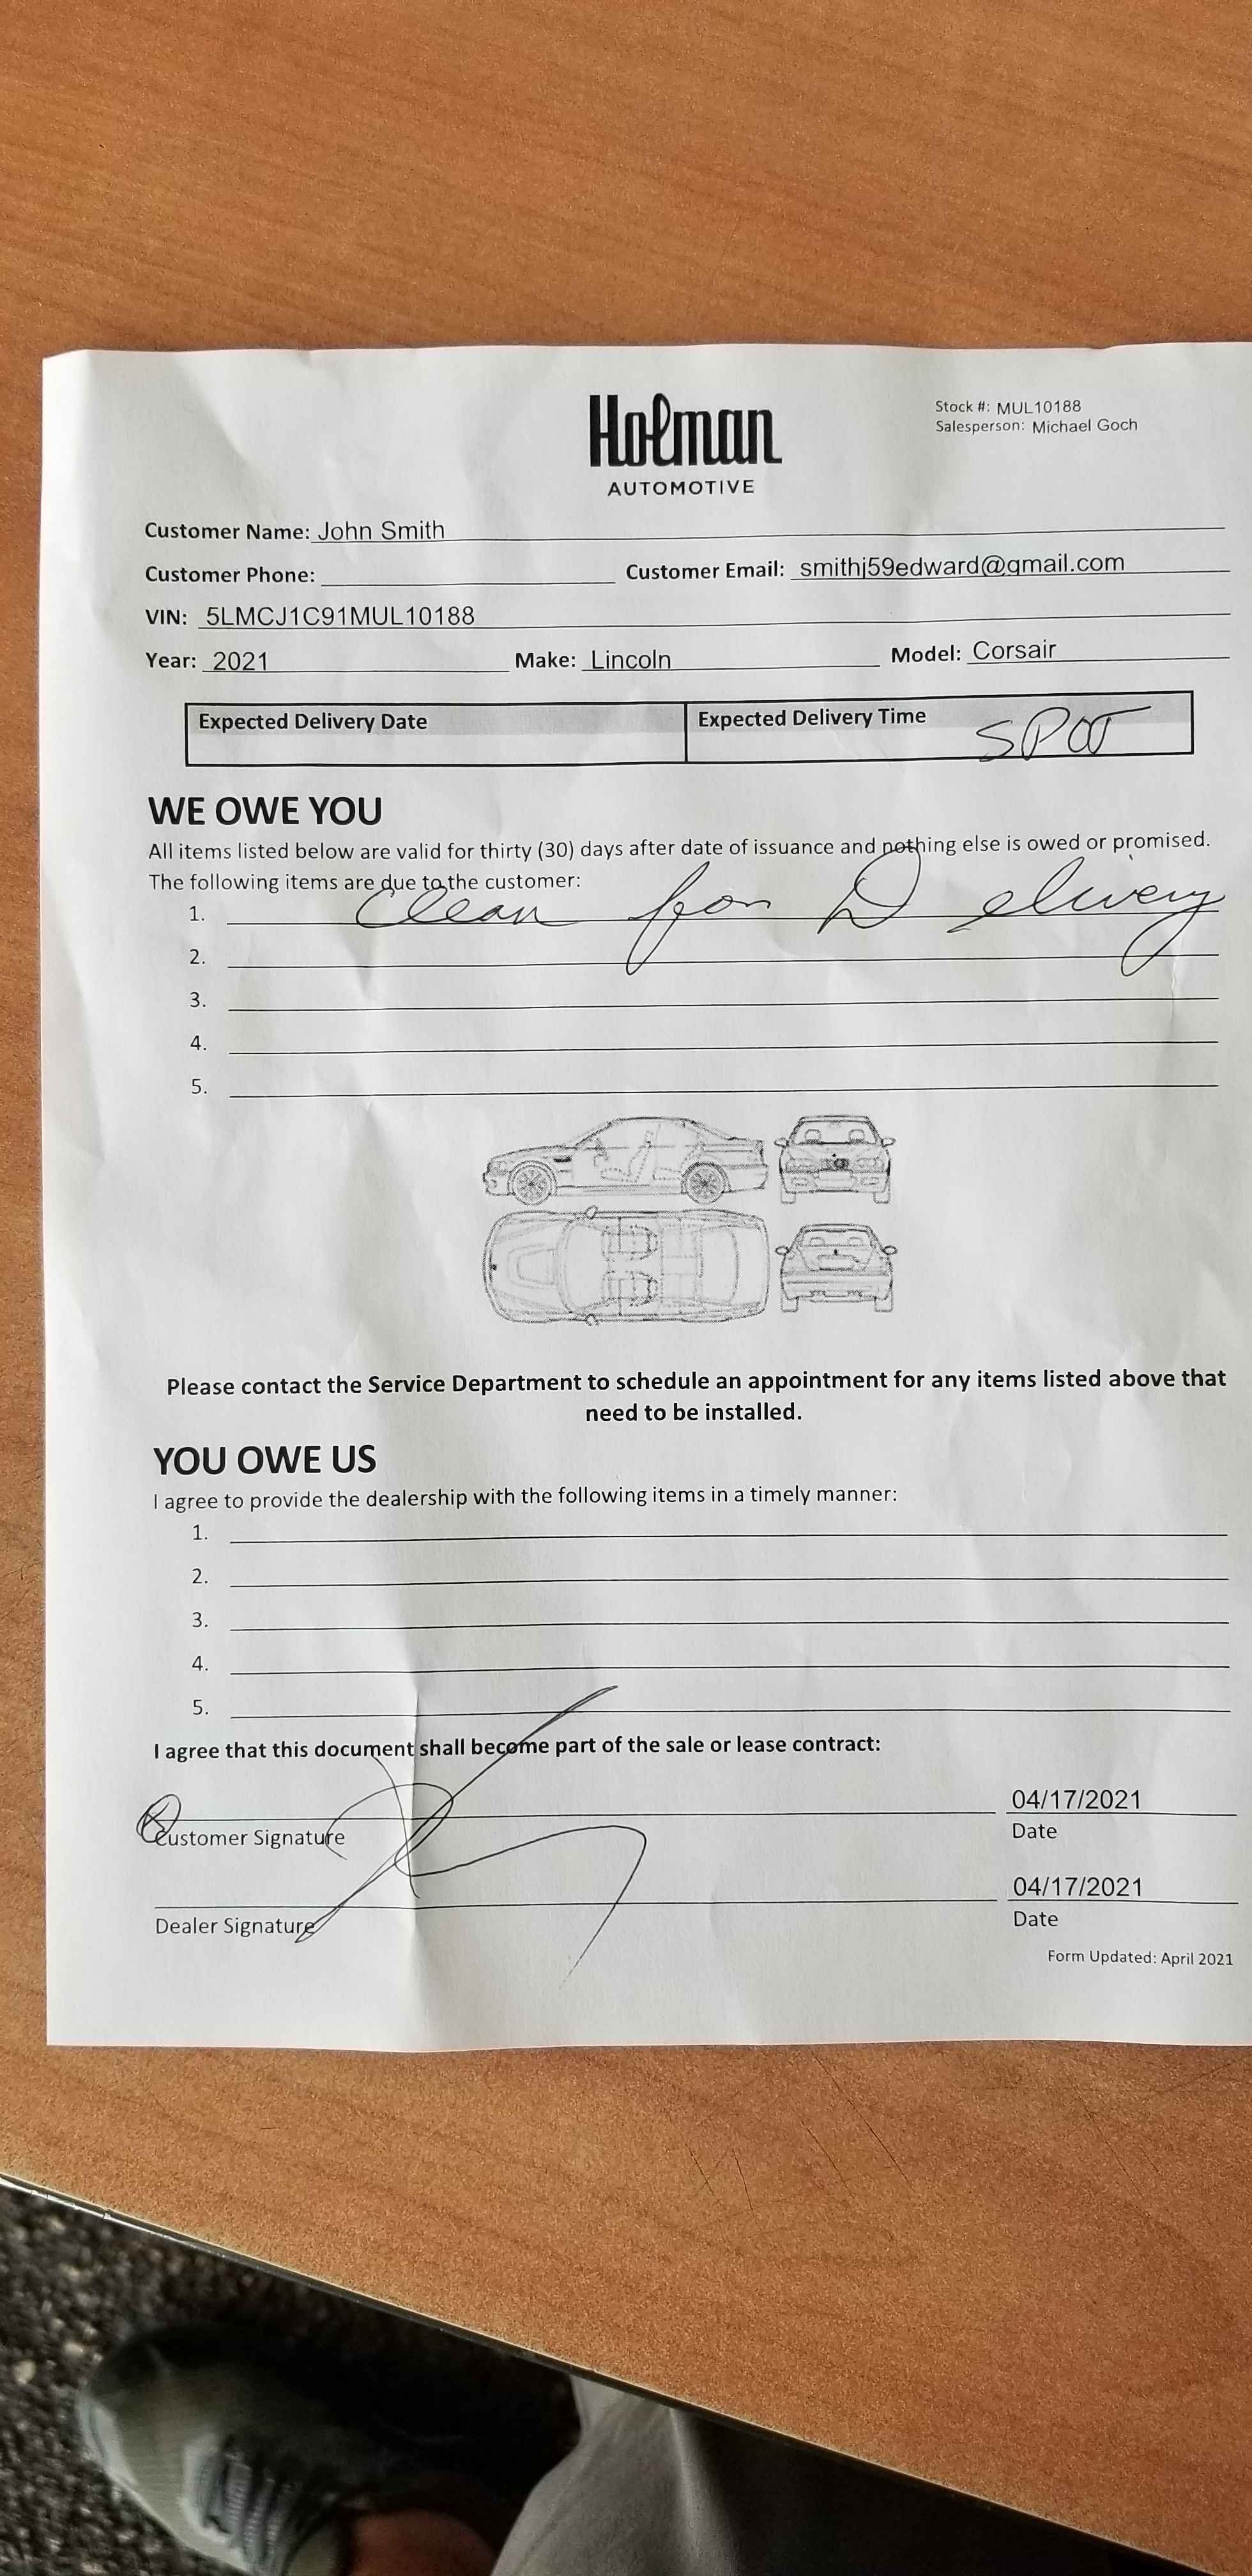 Holman
AUTOMOTIVE
Stock #: MUL10188
Salesperson: Michael Goch
Customer Name: John Smith
Customer Phone: Customer Email: smithj59edward@gmail.com
VIN: 5LMCJ1C91MUL10188
Year: 2021 Make: Lincoln Model: Corsair
Expected Delivery Date Expected Delivery Time SPOT
WE OWE YOU
All items listed below are valid for thirty (30) days after date of issuance and nothing else is owed or promised.
The following items are due to the customer:
1. Clean for Delivery
2.
3.
4.
5.
Please contact the Service Department to schedule an appointment for any items listed above that
need to be installed.
YOU OWE US
I agree to provide the dealership with the following items in a timely manner:
1.
2.
3.
4.
5.
I agree that this document shall become part of the sale or lease contract:
04/17/2021
Customer Signature Date
04/17/2021
Dealer Signature Date
Form Updated: April 2021